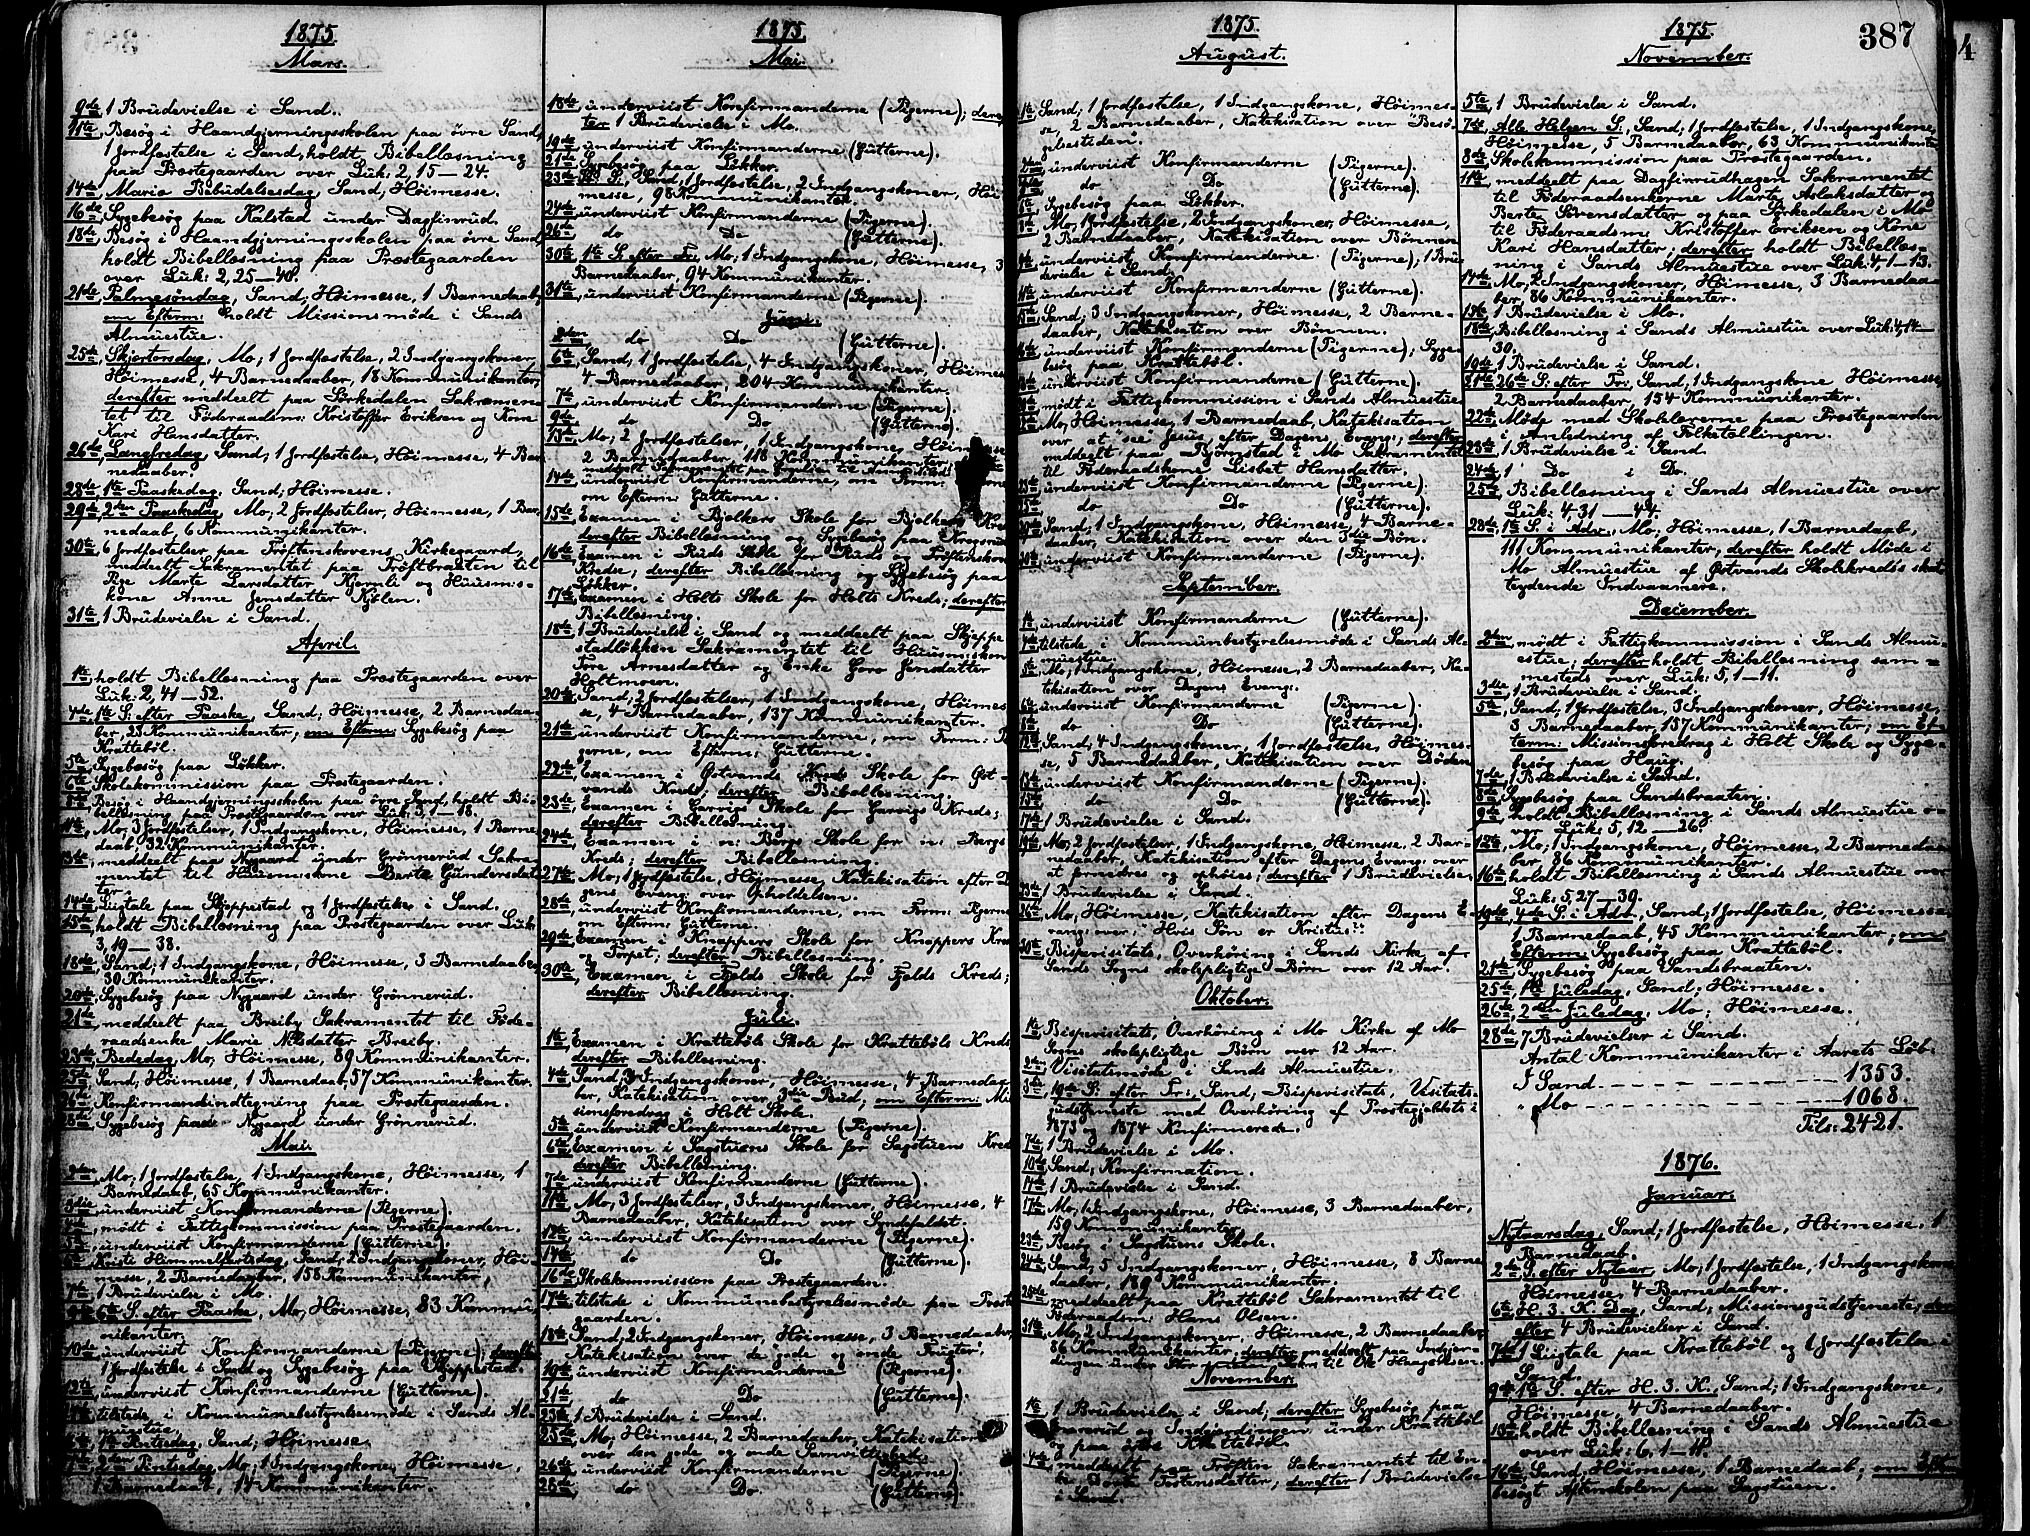 1875.
Mars.
9de, 1 Brüdevielse i Sand.
11te, Besøg i Haandgjerningsskolen paa øvre Sand,
1 Jordfæstelse i Sand, holdt Bibellæsning
paa Præstegaarden over Lük: 2, 15–24.
14de, Maria Bebüdelsesdag, Sand, Høimesse.
16de, Sygebesøg paa Kalstad ünder Dagfinrüd.
18de, Besøg i Haandgjerningsskolen paa øvre Sand,
holdt Bibellæsning paa Præstegaarden
over Lük: 2, 25–40.
21de, Palmesøndag, Sand; Høimesse, 1 Barnedaab,
om Efterm: holdt Missionsmøde i Sands
Almüestüe.
25de, Skjærtorsdag, Mo; 1 Jordfæstelse, 2 Indgangskoner,
Høimesse, 4 Barnedaaber, 18 Kommünikanter,
derefter meddeelt paa Sørkedalen Sakramen-
tet til Føderaadsm: Kristoffer Eriksen og Kone
Kari Hansdatter.
26de, Langfredag, Sand; 1 Jordfæstelse, Høimesse, 4 Bar-
nedaaber.
28de, 1ste Paaskedag, Sand; Høimesse.
29de, 2den Paaskedag, Mo; 2 Jordfæstelser, Høimesse, 1 Bar-
nedaab, 6 Kommünikanter.
30te, 6 Jordfæstelser paa Trøftenskovens Kirkegaard,
meddeelt Sakramentet paa Trøftbraaten til
Pge Marte Larsdatter Kjernli og Hüüsmds-
kone Anne Jensdatter Kjølen.
31te, 1 Brüdevielse i Sand.
April.
1ste, holdt Bibellæsning paa Præstegaarden over
Lük: 2, 41–52.
4de, 1ste S: efter Paaske, Sand; Høimesse, 2 Barnedaa-
ber, 23 Kommünikanter; om Efterm: Sygebesøg paa
Krattebøl.
5te, Sygebesøg paa Løkker.
6te, Skolekommission paa Præstegaarden.
8de, Besøg i Haandgjerningsskolen paa øvre Sand, holdt Bi-
bellæsning paa Præstegaarden over Lük: 3, 1–18.
11te, Mo; 3 Jordfæstelser, 1 Indgangskone, Høimesse, 1 Barne-
daab, 32 Kommünikanter.
13de, meddeelt paa Nygaard ünder Grønnerüd Sakra-
mentet til Hüüsmdskone Berte Gündersdat-
ter.
14de, Liigtale paa Skjeppestad og 1 Jordfæstelse i Sand.
15de, holdt Bibellæsning paa Præstegaarden over Lük:
3, 19–38.
18de, Sand; 1 Indgangskone, Høimesse, 3 Barnedaaber,
30 Kommünikanter.
20de, Sygebesøg paa Nygaard ünder Grønnerüd.
21de, meddeelt paa Breiby Sakramentet til Føde-
raadsenke Marie Nilsdatter Breiby.
23de, Bededag, Mo; Høimesse, 89 Kommünikanter.
25de, Sand; Høimesse, 1 Barnedaab, 57 Kommünikanter.
26de, Konfirmandindtegning paa Præstegaarden.
28de, Sygebesøg paa Nygaard ünder Grønnerüd.
Mai.
2den, Mo; 1 Jordfæstelse, 1 Indgangskone, Høimesse, 1
Barnedaab, 65 Kommünikanter.
3die, ünderviist Konfirmanderne (Pigerne).
4de, mødt i Fattigkommission paa Præstegaarden.
5te, ünderviist Konfirmanderne (Gütterne).
6te, Kristi Himmelfartsdag, Sand; 2 Indgangskoner, Høi-
messe, 2 Barnedaaber, 158 Kommünikanter,
7de, 1 Brüdevielse i Mo.
9de, 6te S: efter Paaske, Mo; Høimesse, 83 Kommü-
nikanter.
10de, ünderviist Konfirmanderne (Pigerne); derefter
1 Jordfæstelse i Sand og Sygebesøg paa Skjeppestad.
12te, ünderviist Konfirmanderne (Gütterne).
tilstede i Kommünebestyrelsesmøde i Sands Al-
müestüe.
16de, 1ste Pintsedag, Sand; Høimesse.
17de, 2den Pintsedag, Mo; 1 Indgangskone, Høimesse,
1 Barnedaab, 14 Kommünikanter.
1875.
Mai.
18de, ünderviist Konfirmanderne (Pigerne); deref-
ter 1 Brüdevielse i Mo.
19de, ünderviist Konfirmanderne (Gütterne).
21de, Sygebesøg paa Løkker.
23de, Sand; 1 Jordfæstelse, 2 Indgangskoner, Høi-
messe, 98 Kommünikanter.
24de, ünderviist Konfirmanderne (Pigerne).
26de, do Do (Gütterne).
30te, 1ste S. efter Tr: Mo; 1 Indgangskone, Høimesse, 3
Barnedaaber, 94 Kommünikanter.
31te, ünderviist Konfirmanderne (Pigerne).
Juni.
2den, do Do (Gütterne).
6te, Sand; 1 Jordfæstelse, 4 Indgangskoner, Høimesse
4 Barnedaaber, 204 Kommünikanter.
7de, ünderviist Konfirmanderne (Pigerne).
9de, do Do (Gütterne).
13de, Mo; 2 Jordfæstelser, 1 Indgangskone, Høimesse
2 Barnedaaber, 118 Kommünikanter
meddeelt Sakramentet paa
14de, ünderviist Konfirmanderne, om Form:
om Efterm: Gütterne.
15de, Examen i Bjølkers Skole for Bjølkers Kreds
derefter Bibellæsning og Sygebesøg paa Krogsrüd
16de, Examen i Rüds Skole for Rüds og Trøftenskov
Kredse, derefter Bibellæsning og Sygebesøg paa
Løkker.
17de, Examen i Holts Skole for Holts Kreds; derefter
Bibellæsning.
18de, 1 Brüdevielse i Sand og meddeelt paa Skjeppe-
stadløkken Sakramentet til Hüüsmdskone
Tore Arnesdatter og Enke Goro Jensdatter
Holtmoen.
20de, Sand; 2 Jordfæstelser, 1 Indgangskone, Høimes-
se, 4 Barnedaaber, 137 Kommünikanter.
21de, ünderviist Konfirmanderne, om Form: Pi-
gerne, om Efterm: Gütterne.
22de, Examen i Østvands Kreds Skole for Øst-
vands Kreds; derefter Bibellæsning.
23de, Examen i Garvigs Skole for Garvigs Kreds;
derefter Bibellæsning.
24de, Examen i n: Bergs Skole for n: Bergs
Kreds; derefter Bibellæsning.
27de, Mo; 1 Jordfæstelse, Høimesse, Katekisation efter Da-
gens Evang: over Opholdelsen.
28de, ünderviist Konfirmanderne, om Form: Pigerne
om Efterm: Gütterne.
29de, Examen i Knappers Skole for Knappers Kreds
og Torpet, derefter Bibellæsning.
30te, Examen i Fjelds Skole for Fjelds Kreds;
derefter Bibellæsning.
Jüli.
1ste, Examen i Krattebøls Skole for Krattebøls Kreds
derefter Bibellæsning.
4de, Sand; 3 Indgangskoner, Høimesse, 4 Barnedaa-
ber, Katekisation over 3die Büd; om Efterm: Mis-
sionsforedrag i Holt Skole.
5te, ünderviist Konfirmanderne (Pigerne).
6te, Examen i Sagstuens Skole for Sagstuen Kreds
derefter Bibellæsning.
7de, ünderviist Konfirmanderne (Gütterne).
11te, Mo, 3 Jordfæstelser, 3 Indgangskoner, Høimesse, 4
Barnedaaber, Katekisation over Syndefaldet.
12te, ünderviist Konfirmanderne (Pigerne).
14de, do Do (Gütterne).
16de, Skolekommission paa Præstegaarden.
17de, tilstede i Kommünebestyrelsesmøde paa Præste-
gaarden.
18de, Sand, 2 Indgangskoner, Høimesse, 3 Barnedaaber,
Katekisation over de gode og onde Frugter,
19de, ünderviist Konfirmanderne (Pigerne).
21de, do Do (Gütterne).
23de, 1 Brüdevielse i Sand.
25de, Mo; Høimesse, 2 Barnedaaber, Katekisation
over den gode og onde Samvittighed.
26de, ünderviist Konfirmanderne (Pigerne).
28de, do Do (Gütterne).
1875.
August.
1ste, Sand; 1 Jordfæstelse, 1 Indgangskone, Høimes-
se, 2 Barnedaaber, Katekisation over "Besø-
gelsestiden".
2den, ünderviist Konfirmanderne (Pigerne).
4de, do Do (Gütterne).
Sygebesøg paa Løkker.
8de, Mo, 1 Jordfæstelse, 2 Indgangskoner, Høimesse,
2 Barnedaaber, Katekisation over Bønnen
9de, ünderviist Konfirmanderne (Pigerne); 1 Brü-
devielse i Sand.
11te, ünderviist Konfirmanderne (Gütterne).
15de, Sand; 3 Indgangskoner, Høimesse, 2 Barne-
daaber, Katekisation over Bønnen.
16de, ünderviist Konfirmanderne (Pigerne); Syge-
besøg paa Krattebøl.
18de, ünderviist Konfirmanderne (Gütterne).
mødt i Fattigkommission i Sands Almüestüe
22de, Mo, Høimesse, 1 Barnedaab, Katekisation
over at "see" Jesus, efter Dagens Evang:; derefter
meddeelt paa Bjørnstad i Mo Sakramentet
til Føderaadskone Lisbet Hansdatter.
23de, ünderviist Konfirmanderne (Pigerne).
25de, do Do (Gütterne).
29de, Sand; 1 Indgangskone, Høimesse, 4 Barne-
daaber, Katekisation over den 3die Bøn.
30te, ünderviist Konfirmanderne (Pigerne).
September.
1ste, ünderviist Konfirmanderne (Gütterne).
4de, tilstede i Kommünbestyrelsesmøde i Sands Al-
müestüe.
5te, Mo, 1 Indgangskone, Høimesse, 2 Barnedaaber, Ka-
tekisation over Dagens Evang:.
6te, ünderviist Konfirmanderne (Pigerne).
8de, do Do (Gütterne).
12te, Sand; 4 Indgangskoner, 1 Jordfæstelse, Høimes-
se, 5 Barnedaaber, Katekisation over Døden
13de, ünderviist Konfirmanderne (Pigerne).
15de, do Do (Gütterne).
17de, 1 Brüdevielse i Sand.
19de, Mo, 2 Jordfæstelser, 1 Indgangskone, Høimesse, 2 Bar-
nedaaber, Katekisation efter Dagens Evang: over
at fornedres og ophøies; derefter 1 Brüdevielse.
23de, 1 Brüdevielse i Sand.
26de, Mo, Høimesse, Katekisation efter Dagens E-
vang: over "Hvis Søn er Kristus?".
30te, Bispevisitats, Overhøring i Sands Kirke af
Sands Sogns skolepligtige Børn over 12 Aar.
Oktober.
1ste, Bispevisitats, Overhøring i Mo Kirke af Mo
Sogns skolepligtige Børn over 12 Aar.
2den, Visitatsmøde i Sands Almüestüe.
3die, 19de S: efter Tr:, Sand, Bispevisitats, Visitats-
güdstjeneste med Overhøring af Præstegjeldets i
1873 og 1874 Konfirmerede.
7de, 1 Brüdevielse i Mo.
10de, Sand, Konfirmation.
14de, 1 Brüdevielse i Sand.
17de, Mo, 1 Indgangskone, Høimesse, 3 Barnedaaber,
159 Kommünikanter.
23de, Besøg i Sagstuens Skole.
24de, Sand, 5 Indgangskoner, Høimesse, 8 Barne-
daaber, 189 Kommünikanter.
meddeelt paa Krattebøl Sakramentet til
Føderaadsm: Hans Olsen.
31te, Mo, 2 Indgangskoner, Høimesse, 2 Barnedaaber
86 Kommünikanter, derefter meddeelt paa
til Ole Haagensen.
November.
1ste, 1 Brüdevielse i Sand; derefter Sygebesøg paa
og Indgjerdingen ünder Krattebøl
og paa øvre Krattebøl.
4de, meddeelt paa Trøften Sakramentet til En-
ke Dorte Torstensdatter, derefter 1 Brüdevielse
i Sand.
1875.
November.
387
5te, 1 Brüdevielse i Sand.
7de, Alle Helgen S:, Sand; 1 Jordfæstelse, 1 Indgangskone,
Høimesse, 5 Barnedaaber, 63 Kommünikanter
8de, Skolekommission paa Præstegaarden.
11te, meddeelt paa Dagfinrüdhagen Sakramentet
til Føderaadsenkerne Marte Aslaksdatter og
Berte Sørensdatter og paa Sørkedalen i Mo
til Føderaadsm: Kristoffer Eriksen og Kone
Kari Hansdatter; derefter holdt Bibellæs-
ning i Sands Almüestüe over Lük: 4, 1–13.
14de, Mo, 2 Indgangskoner, Høimesse, 3 Barnedaa-
ber, 86 Kommünikanter.
15de, 1 Brüdevielse i Mo.
18de, Bibellæsning i Sands Almüestüe over Lük: 4, 14–
30.
19de, 1 Brüdevielse i Sand.
21de, 26de S: efter Tr:, Sand, 1 Indgangskone Høimesse,
2 Barnedaaber, 154 Kommünikanter.
22de, Møde med Skolelærerne paa Præstegaarden
i Anledning af Folketællingen.
23de, 1 Brüdevielse i Sand.
24de, 1 Do i Do.
25de, Bibellæsning i Sands Almüestüe over
Lük: 4, 31–44.
28de, 1ste S. i Adv., Mo, Høimesse, 1 Barnedaab,
111 Kommünikanter, derefter holdt Møde i
Mo Almüestüe af Østvands Skolekreds's skat-
teydende Indvaanere.
December.
2den, mødt i Fattigkommission i Sands Almü-
estüe; derefter holdt Bibellæsning sam-
mesteds over Lük: 5, 1–11.
3die, 1 Brüdevielse i Sand.
5te, Sand, 1 Jordfæstelse, 3 Indgangskoner, Høimesse,
3 Barnedaaber, 157 Kommünikanter; om Ef-
term: Missionsforedrag i Holt Skole og Syge-
besøg paa Haug.
7de, 1 Brüdevielse i Sand.
8de, Sygebesøg paa Sandsbraaten.
9de, holdt Bibellæsning i Sands Almüestüe o-
ver Lük: 5, 12–26.
12te, Mo, 1 Indgangskone, Høimesse, 2 Barnedaa-
ber, 86 Kommünikanter.
16de, holdt Bibellæsning i Sands Almüestüe over
Lük: 5, 27–39.
19de, 4de S: i Adv., Sand; 1 Jordfæstelse, Høimesse
1 Barnedaab, 45 Kommünikanter; om
Efterm: Sygebesøg paa Krattebøl.
21de, Sygebesøg paa Sandsbraaten.
25de, 1ste Jüledag, Sand; Høimesse.
26de, 2den Jüledag, Mo; Høimesse.
28de, 7 Brüdevielser i Sand.
Antal Kommünikanter i Aarets Løb:
I Sand – – – – – – 1353.
" Mo – – – – – – 1068.
Tils: 2421.
1876.
Januar.
Nytaarsdag, Sand; 1 Jordfæstelse, Høimesse, 1
Barnedaab.
2den, S. efter Nytaar, Mo; 1 Jordfæstelse, 1 Indgangskone
Høimesse, 4 Barnedaaber.
6te, H. 3. K. Dag, Sand; Missionsgüdstjeneste; der-
efter 4 Brüdevielser i Sand.
7de, 1 Liigtale paa Krattebøl og 1 Jordfæstelse i
Sand.
9de, 1ste S. efter H. 3. K., Sand; 1 Indgangskone,
Høimesse, 4 Barnedaaber.
holdt Bibellæsning i Sands Almüestüe
over Lük: 6, 1–11.
16de, Sand; Høimesse, 1 Barnedaab; om
besøgt Aftenskolen paa Sagstuen.